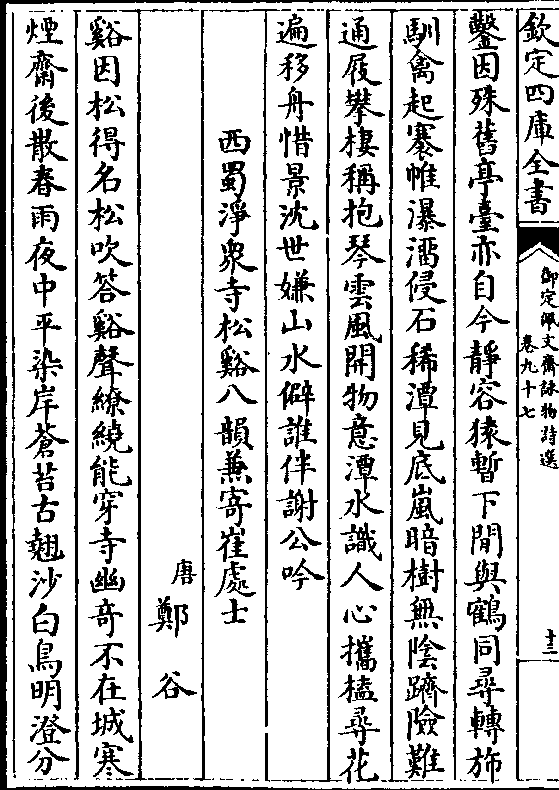 欽定四庫全書
御定佩文齋詠物詩選
卷九十七
十三
鑿因殊舊亭臺亦自今靜容猿暫下閒與鶴同尋轉斾
馴禽起褰帷瀑溜侵石稀潭見底嵐暗樹無陰躋險難
通屐攀棲稱抱琴雲風開物意潭水識人心攜榼尋花
遍移舟惜景沈世嫌山水僻誰伴謝公吟
西蜀淨衆寺松谿八韻兼寄崔處士
唐
鄭谷
谿因松得名松吹答谿聲繚繞能穿寺幽奇不在城寒
煙齋後散春雨夜中平染岸蒼苔古翹沙白鳥明澄分